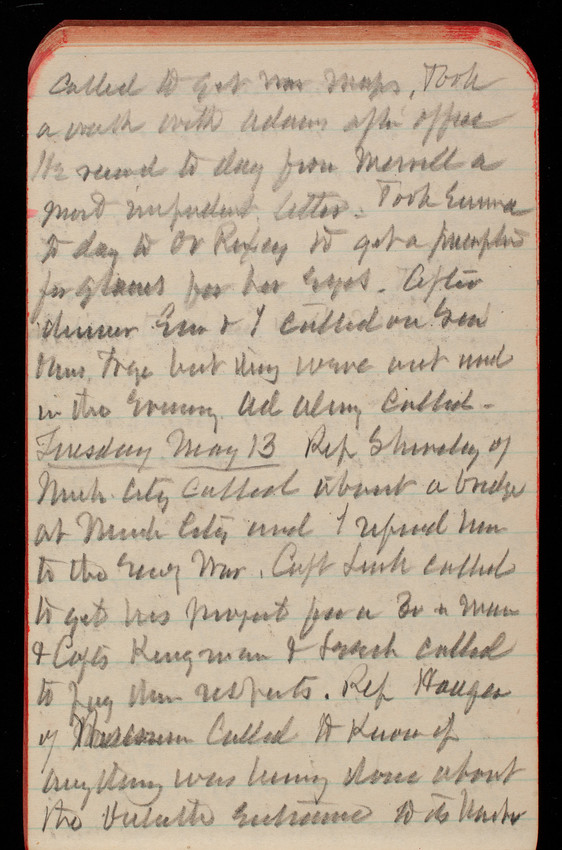 called to get war maps. Took
a walk with Adams after office
We recvd to day from Merrill a
most impudent letter. Took Emma
to day to Dr Rixey to get a
for glasses for her Eyes. After
dinner Em & I called on Gen
but they were out and
in the Evening called -
Tuesday May 13 Rep of
Mich City called about a bridge
at Mich City and I refered him
to the Secy War. Capt Lusk called
to get his project for a
& Capts Kingman & called
to pay their respects. Rep Haugen
of Wisconsin Called to Know if
anything was being done about
the Duluth Entrance to its Harbor